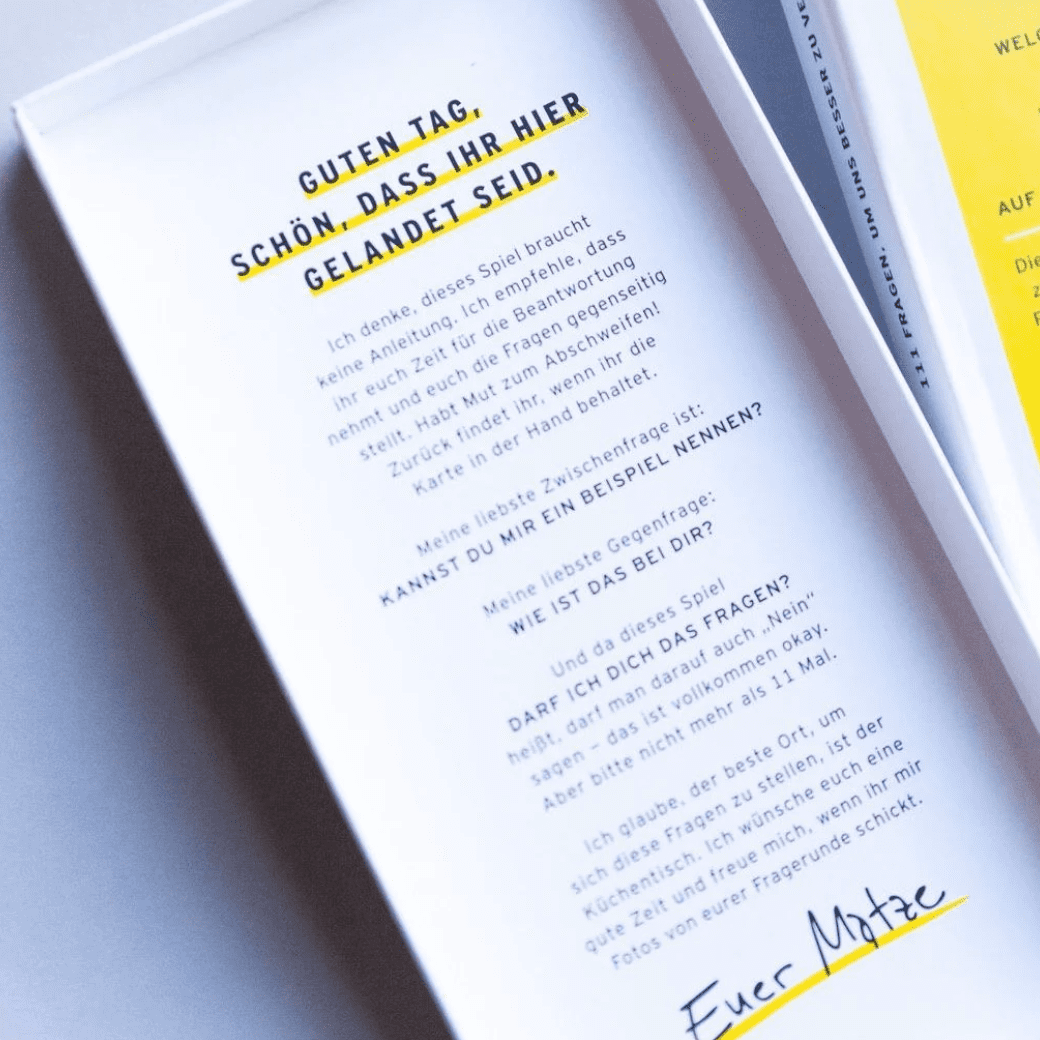 GUTEN TAG,
SCHÖN, DASS IHR HIER
GELANDET SEID.
Ich denke, dieses Spiel braucht
keine Anleitung. Ich empfehle, dass
ihr euch Zeit für die Beantwortung
nehmt und euch die Fragen gegenseitig
stellt. Habt Mut zum Abschweifen!
Zurück findet ihr, wenn ihr die
Karte in der Hand behaltet.
Meine liebste Zwischenfrage ist:
KANNST DU MIR EIN BEISPIEL NENNEN?
Meine liebste Gegenfrage:
WIE IST DAS BEI DIR?
Und da dieses Spiel
DARF ICH DICH DAS FRAGEN?
heißt, darf man darauf auch „Nein“
sagen – das ist vollkommen okay.
Aber bitte nicht mehr als 11 Mal.
Ich glaube, der beste Ort, um
sich diese Fragen zu stellen, ist der
Küchentisch. Ich wünsche euch eine
gute Zeit und freue mich, wenn ihr mir
Fotos von eurer Fragerunde schickt.
Euer Matze
111 FRAGEN, UM UNS BESSER ZU
AUF